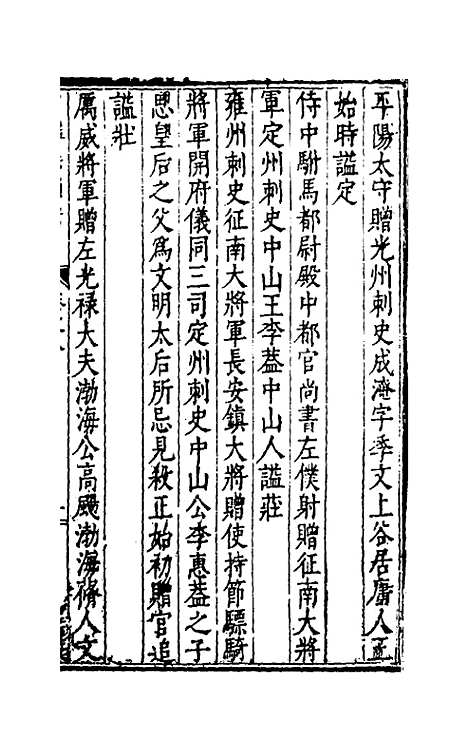 平陽太守贈光州刺史成淹字季文上谷居庸人正
始時謚定
侍中駙馬都尉殿中都官尚書左僕射贈征南大將
軍定州刺史中山王李葢中山人謚莊
雍州刺史征南大將軍長安鎮大將贈使持節驃騎
將軍開府儀同三司定州刺史中山公李惠葢之子
思皇后之父爲文明太后所忌見殺正始初贈官追
謚壯
厲威將軍贈左光禄大夫渤海公高颺渤海脩人文